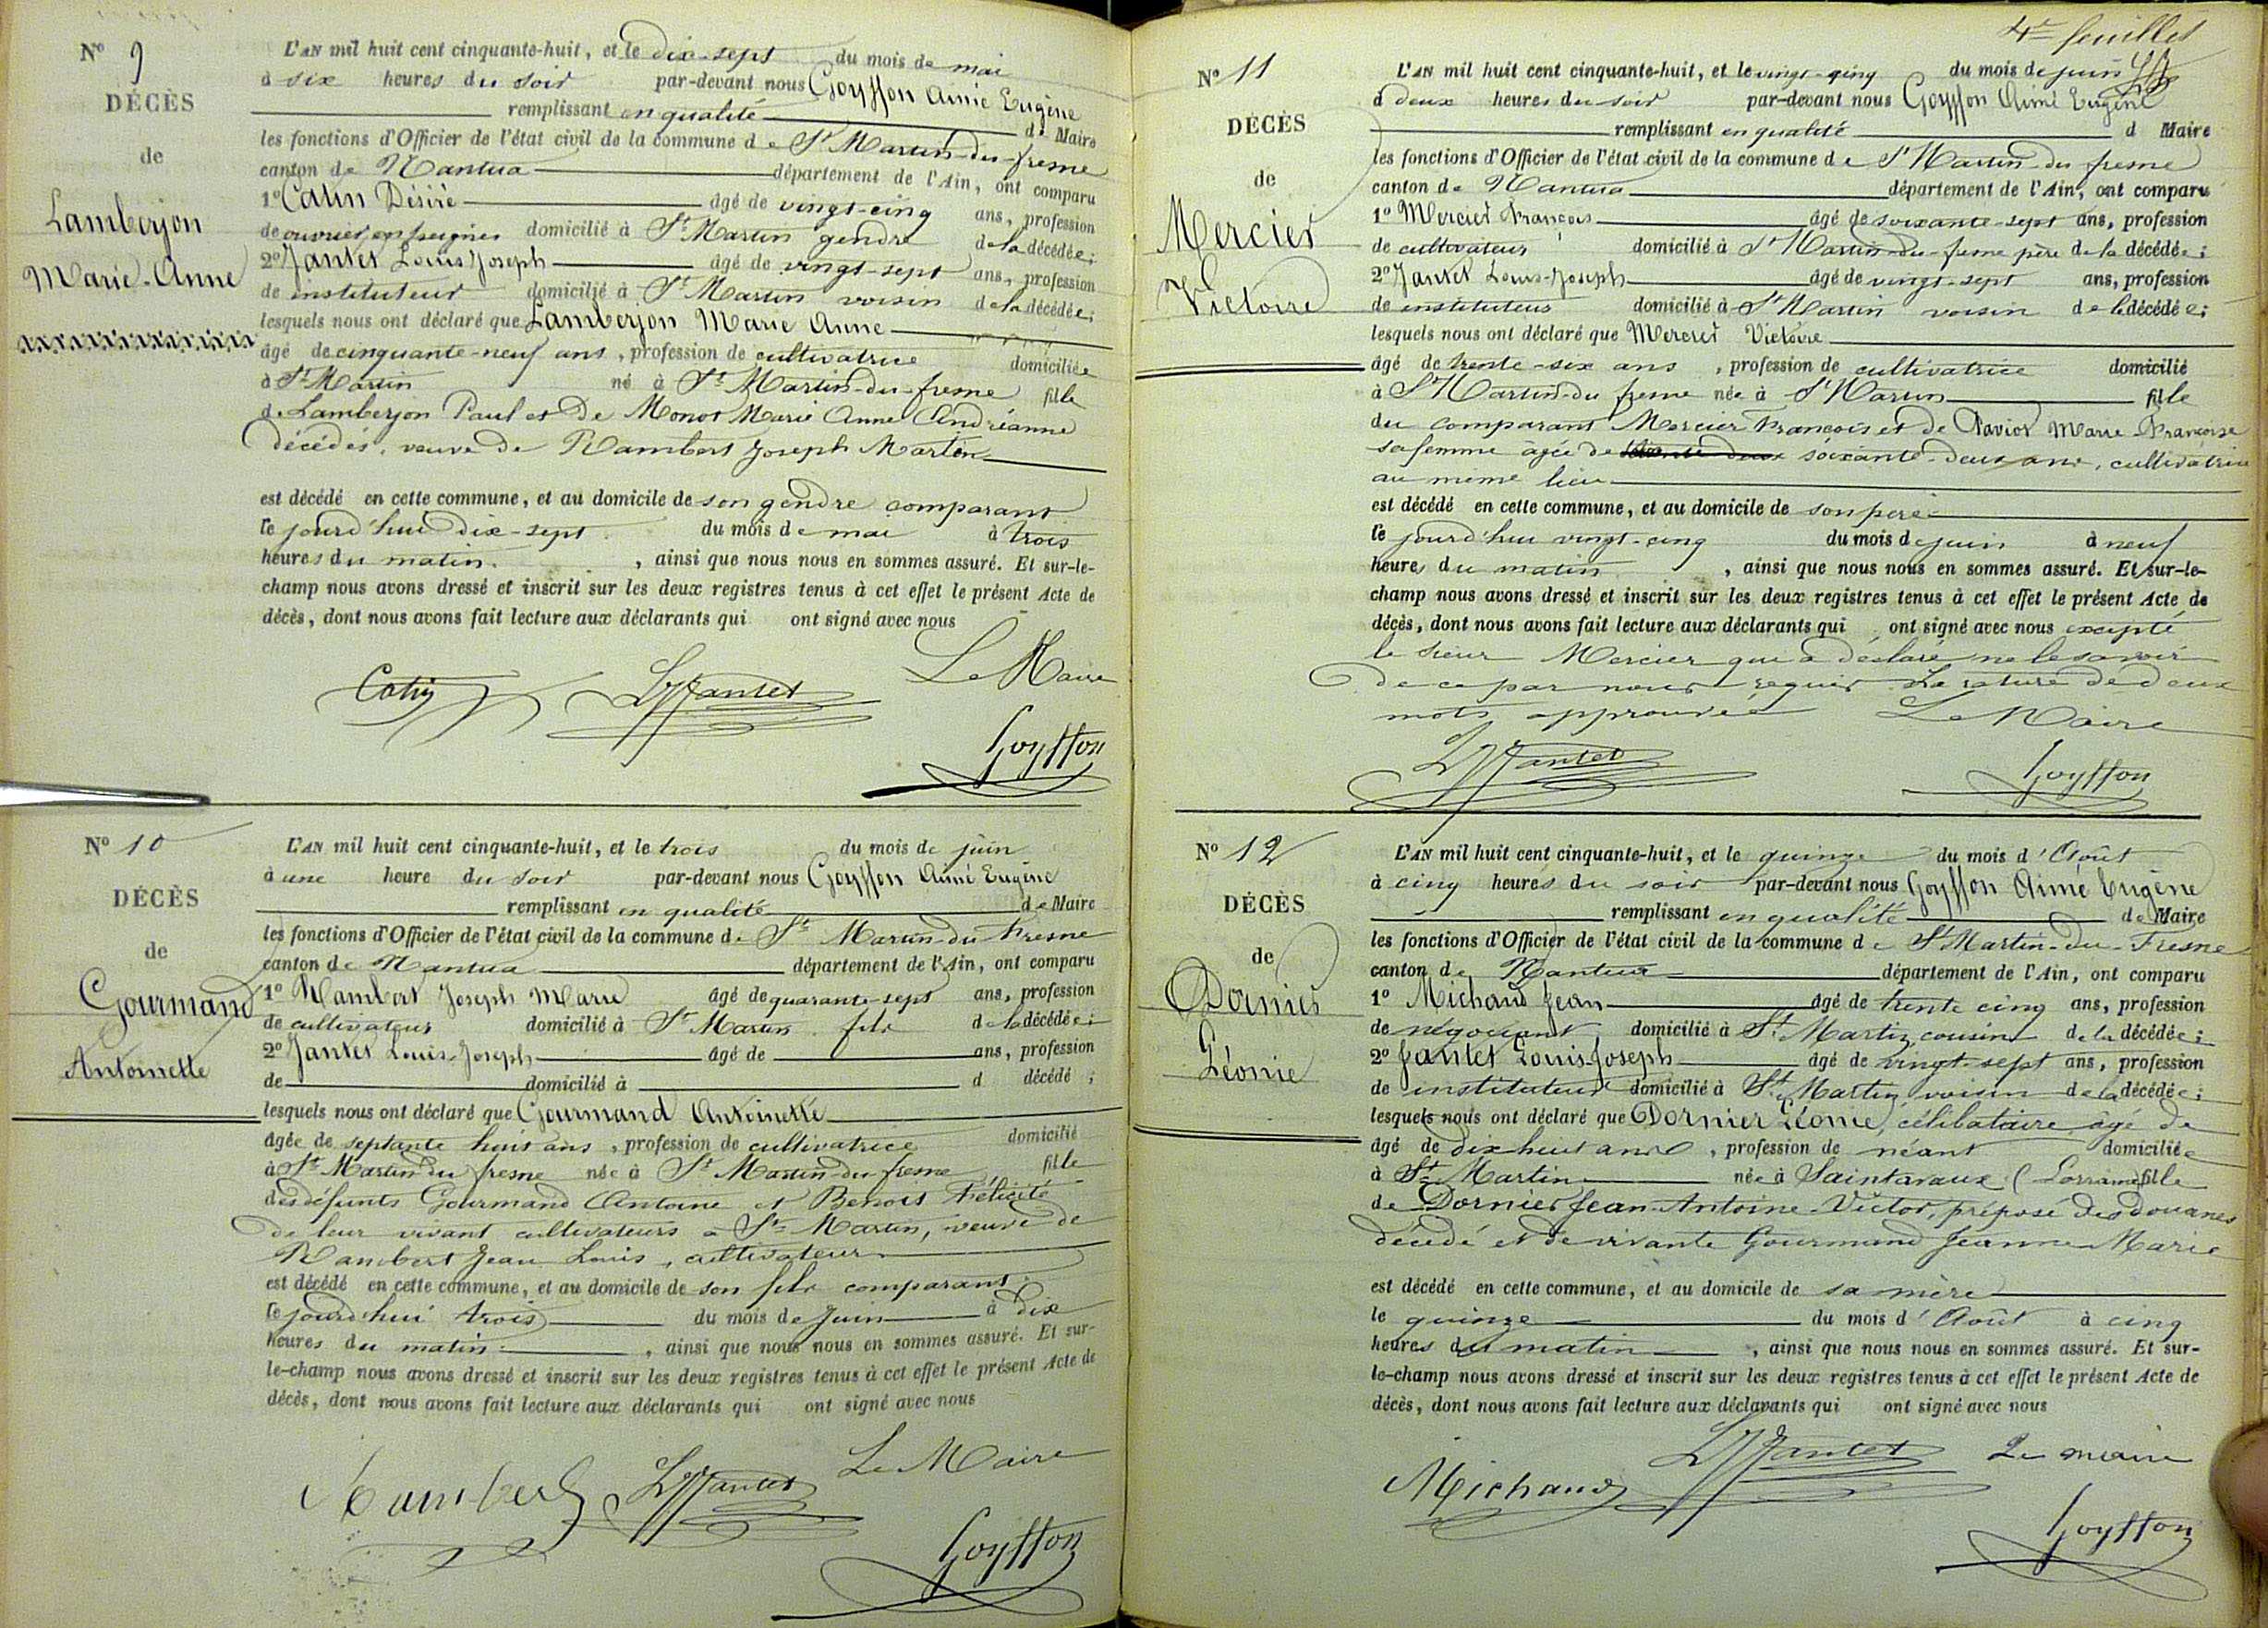 N° 9
DÉCÈS
de
Lamberjon
Marie-Anne
L'AN mil huit cent cinquante-huit, et le dix-sept du mois de mai
à six heures du soir par-devant nous Goyffon Aimé Eugène
remplissant en qualité de Maire
les fonctions d'Officier de l'état civil de la commune de St Martin-du-fresne
canton de Nantua département de l'Ain, ont comparu
1° Catin Désiré âgé de vingt-cinq ans, profession
de ouvrier en peignes domicilié à St Martin gendre de la décédée;
2° Jantet Louis Joseph âgé de vingt-sept ans, profession
de instituteur domicilié à St Martin voisin de la décédée;
lesquels nous ont déclaré que Lamberjon Marie Anne
âgé de cinquante-neuf ans, profession de cultivatrice domiciliée
à St Martin né à St Martin-du-fresne fille
de Lamberjon Paul et de Monot Marie Anne Andréanne
décédés, veuve de Rambert Joseph Martin
est décédé en cette commune, et au domicile de son gendre comparant
ce jourd'hui dix-sept du mois de mai à trois
heures du matin, ainsi que nous nous en sommes assuré. Et sur-le-
champ nous avons dressé et inscrit sur les deux registres tenus à cet effet le présent Acte de
décès, dont nous avons fait lecture aux déclarants qui ont signé avec nous
Le Maire
Catin LJJantet
Goyffon
N° 10
DÉCÈS
de
Gourmand
Antoinette
L'AN mil huit cent cinquante-huit, et le trois du mois de juin
à une heure du soir par-devant nous Goyffon Aimé Eugène
remplissant en qualité de Maire
les fonctions d'Officier de l'état civil de la commune de St Martin-du-Fresne
canton de Nantua département de l'Ain, ont comparu
1° Rambert Joseph Marie âgé de quarante-sept ans, profession
de cultivateur domicilié à St Martin fils de la décédée;
2° Jantet Louis-Joseph âgé de ans, profession
de domicilié à d décédé ;
lesquels nous ont déclaré que Gourmand Antoinette
âgée de septante huit ans, profession de cultivatrice domicilié
à St Martin du fresne née à St Martin du fresne fille
des défunts Gourmand Antoine et Benoit Félicité
de leur vivant cultivateurs à St Martin, veuve de
Rambert Jean Louis, cultivateur
est décédé en cette commune, et au domicile de son fils comparant
ce jourd'hui trois du mois de juin à dix
heures du matin, ainsi que nous nous en sommes assuré. Et sur-
le-champ nous avons dressé et inscrit sur les deux registres tenus à cet effet le présent Acte de
décès, dont nous avons fait lecture aux déclarants qui ont signé avec nous
Le Maire
Rambert LJJantet
Goyffon
4e feuillet
N° 11
DÉCÈS
de
Mercier
Victoire
L'AN mil huit cent cinquante-huit, et le vingt-cinq du mois de juin
à deux heures du soir par-devant nous Goyffon Aimé Eugène
remplissant en qualité d Maire
les fonctions d'Officier de l'état civil de la commune de St Martin-du fresne
canton de Nantua département de l'Ain, ont comparu
1° Mercier François âgé de soixante-sept ans, profession
de cultivateur domicilié à St Martin-du-fresne père de la décédée;
2° Jantet Louis-Joseph âgé de vingt-sept ans, profession
de instituteur domicilié à St Martin voisin de la décédée;
lesquels nous ont déclaré que Mercier Victoire
âgé de trente-six ans, profession de cultivatrice domicilié
à St Martin-du fresne née à St Martin fille
du comparant Mercier François et de Pavior Marie-Françoise
sa femme âgée de soixante-deux ans, cultivatrice
au même lieu
est décédé en cette commune, et au domicile de son père
ce jourd'hui vingt-cinq du mois de juin à neuf
heures du matin, ainsi que nous nous en sommes assuré. Et sur-le-
champ nous avons dressé et inscrit sur les deux registres tenus à cet effet le présent Acte de
décès, dont nous avons fait lecture aux déclarants qui ont signé avec nous excepté
le sieur Mercier qui a déclaré ne le savoir
de ce par nous requis. La rature de deux
mots approuvée Le Maire
LJJantet Goyffon
N° 12
DÉCÈS
de
Dornier
Léonie
L'AN mil huit cent cinquante-huit, et le quinze du mois d'Août
à cinq heures du soir par-devant nous Goyffon Aimé Eugène
remplissant en qualité de Maire
les fonctions d'Officier de l'état civil de la commune de St Martin-du-Fresne
canton de Nantua département de l'Ain, ont comparu
1° Michaud Jean âgé de trente cinq ans, profession
de négociant domicilié à St Martin, cousin de la décédée;
2° Jantet Louis-Joseph âgé de vingt-sept ans, profession
de instituteur domicilié à St Martin, voisin de la décédée;
lesquels nous ont déclaré que Dornier Léonie, célibataire âgé de
âgé de dix huit ans, profession de néant domiciliée
à St Martin née à Saintavaux (Lorraine) fille
de Dornier Jean-Antoine-Victor, préposé des douanes
décédé et de vivante Gourmand Jeanne Marie
est décédé en cette commune, et au domicile de sa mère
le quinze du mois d'Août à cinq
heures du matin, ainsi que nous nous en sommes assuré. Et sur-
le-champ nous avons dressé et inscrit sur les deux registres tenus à cet effet le présent Acte de
décès, dont nous avons fait lecture aux déclarants qui ont signé avec nous
Michaud LJJantet Le maire
Goyffon